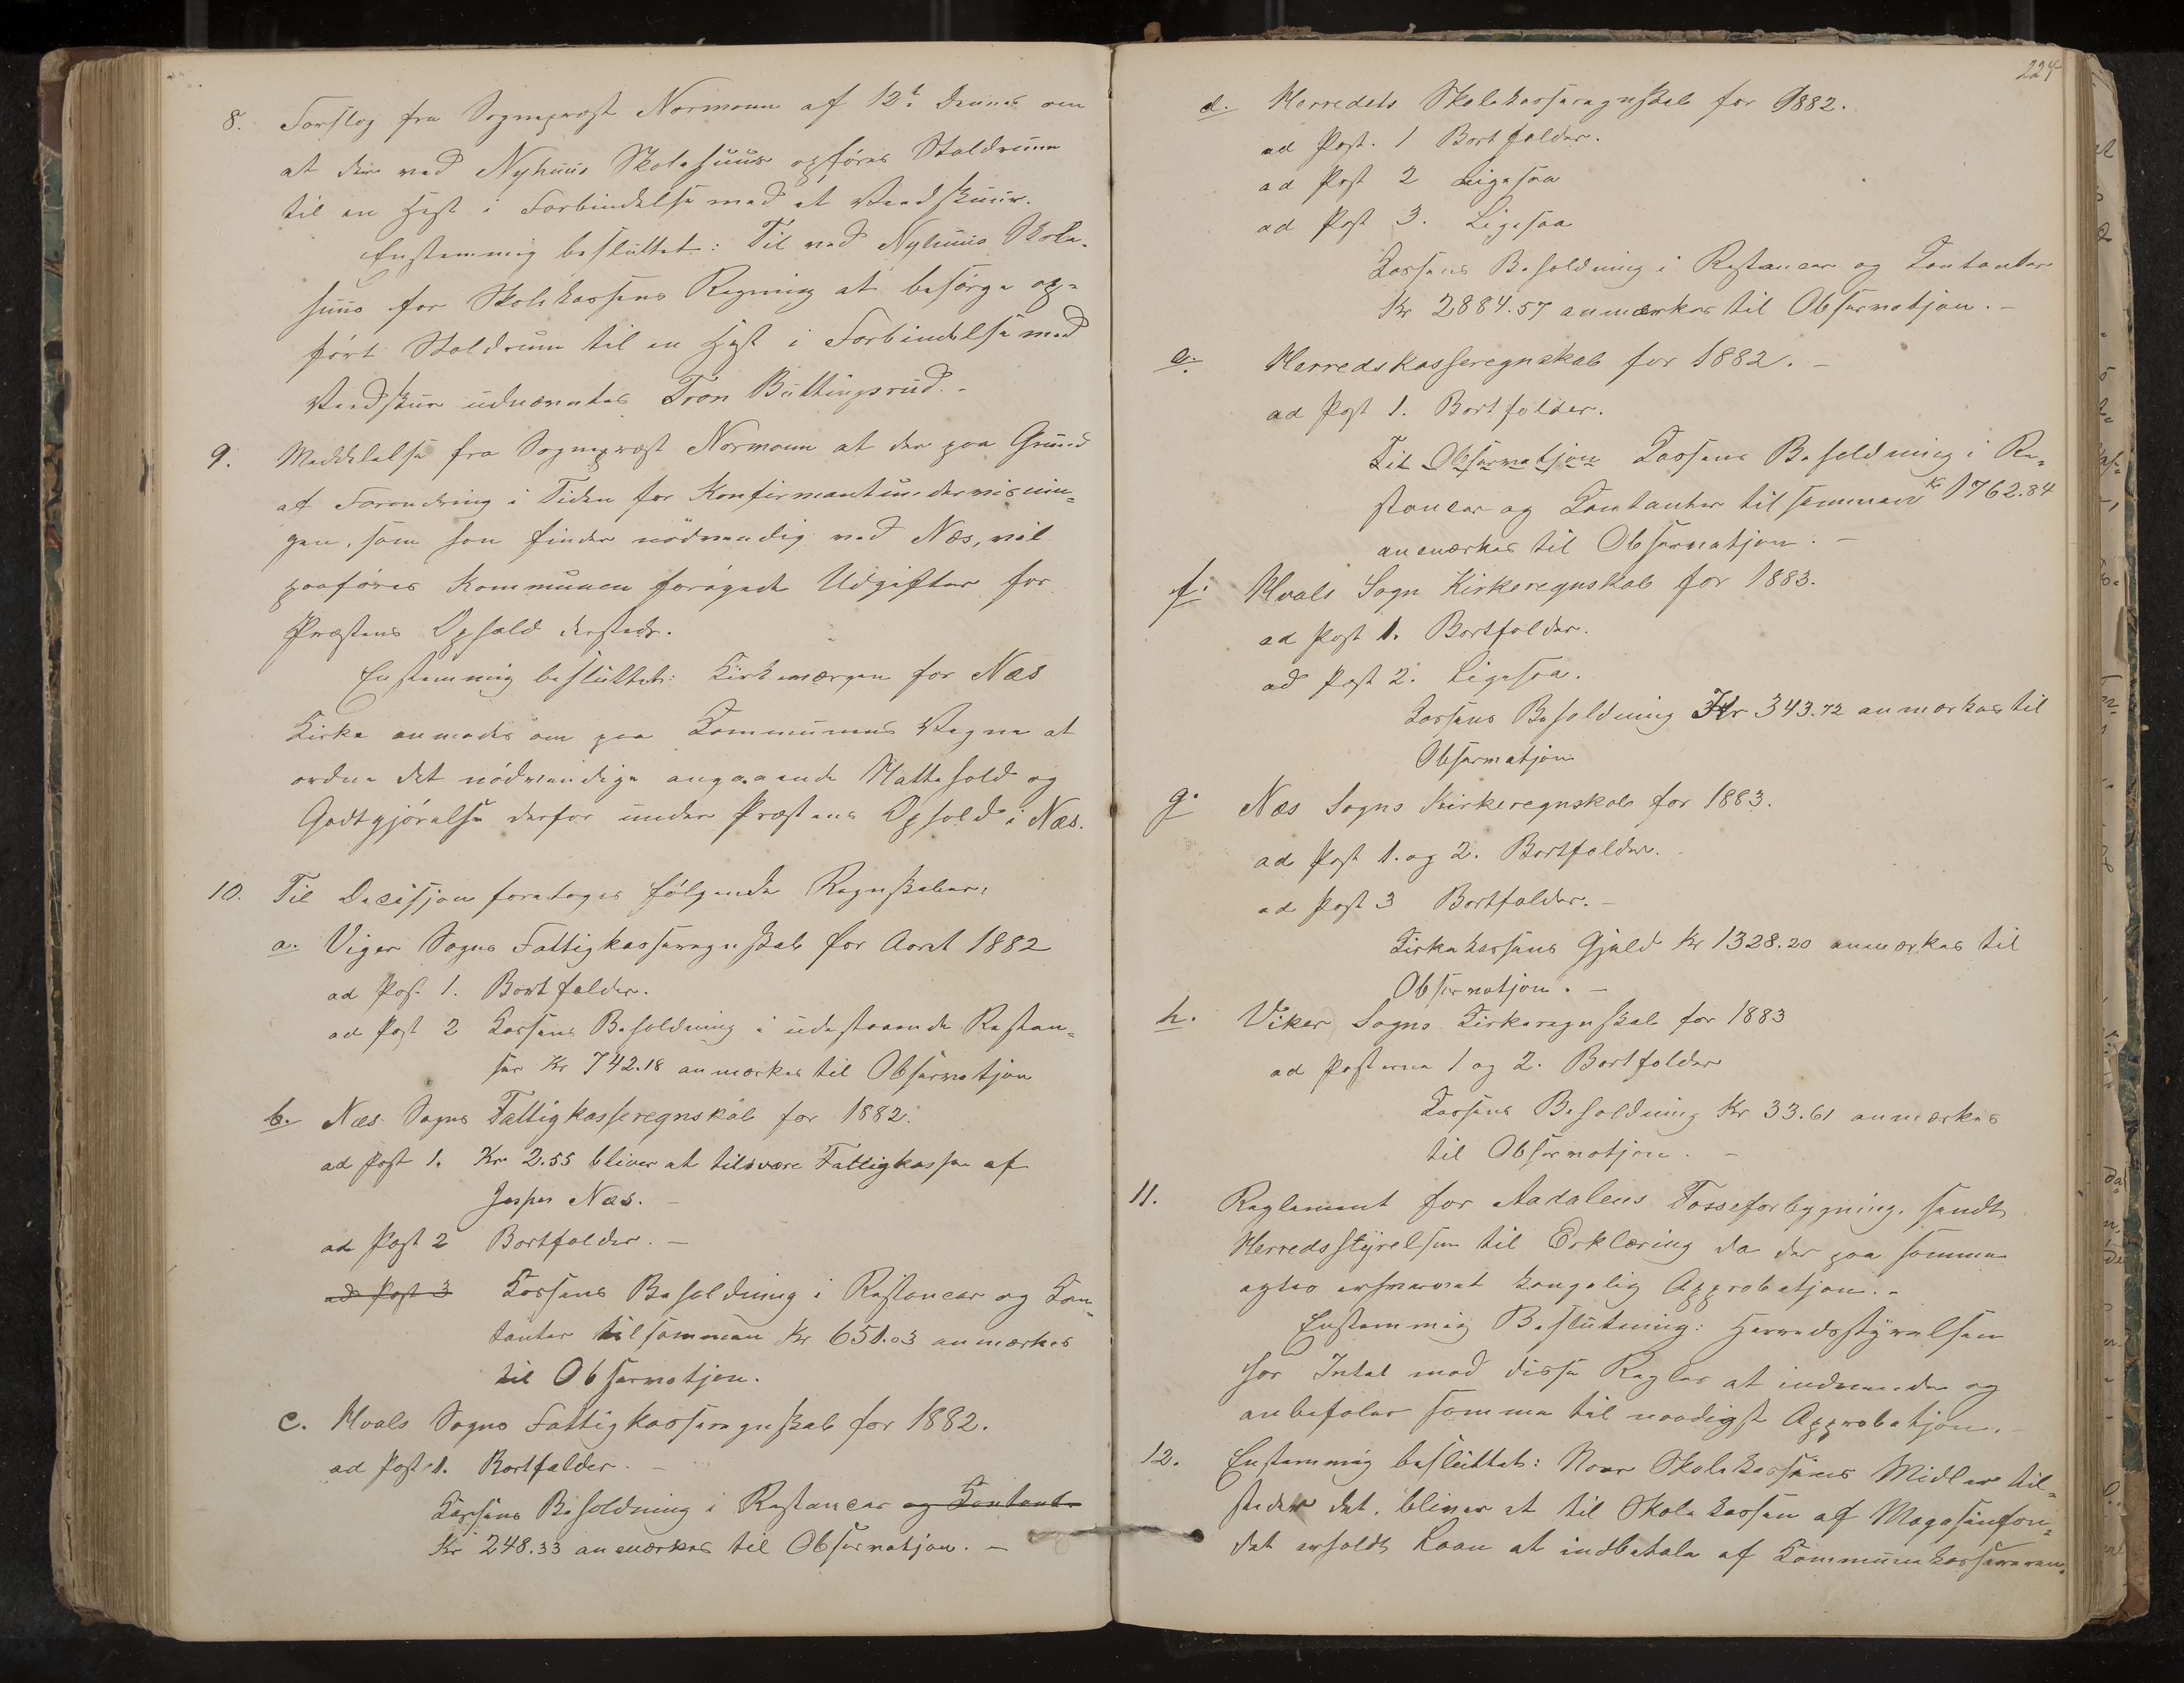 8. Forslag fra Sogneprest Normann af 12t Dennes om
at der ved Nyhuus Skolehuus opføres Staldrum
til en Hest i Forbindelse med et Vedskuur.
Enstemmig besluttet: Til ved Nyhuus Skole-
huus for Skolekassens Regning at besørge op-
ført Staldrum til en Hest i Forbindelse med
Vedskur udnævntes Tron Buttingsrud. -
9. Meddelelse fra Sogneprest Normann at der paa Grund
af Forandring i Tiden for Konfirmantundervisnin-
gen, som han finder nødvendig ved Næs, vil
paaføres Kommunen forøgede Udgifter for
Præstens Ophold dersteds.
Enstemmig besluttet: Kirkeværgen for Næs
Kirke anmodes om paa Kommunens Vegne at
ordne det nødvendige angaaende Nattehold og
Godtgjørelse derfor under Præstens Ophold i Næs.
10. Til Decisjon foretoges følgende Regnskaber:
a. Viger Sogns Fattigkasseregnskab for Aaret 1882
ad Post 1. Bortfalder.
ad Post 2 Kassens Beholdning i udestaaende Restan-
ser Kr 742.18 anmærkes til Observatjon
b. Næs Sogns Fattigkasseregnskab for 1882.
ad Post 1. Kr 2.55 bliver at tilsvare Fattigkassen af
Jesper Næs. -
ad Post 2 Bortfalder. -
ad Post 3 Kassens Beholdning i Restancer og Kon-
tanter tilsammen Kr 651.03 anmærkes
til Observatjon.
c. Hvals Sogns Fattigkasseregnskab for 1882.
ad Post 1. Bortfalder. -
Kassens Beholdning i Restancer og Kontanter
Kr 248.33 anmærkes til Observatjon. -
224
d. Herredets Skolekasseregnskab for 1882.
ad Post. 1 Bortfalder.
ad Post 2 Ligesaa
ad Post 3. Ligesaa
Kassens Beholdning i Restancer og Kontanter
Kr 2884.57 anmærkes til Observatjon. -
e. Herredskasseregnskab for 1882. -
ad Post 1. Bortfalder.
Til Observatjon Kassens Beholdning i Re-
stancer og Kontanter tilsammen Kr 1762.84
anmærkes til Observatjon. -
f. Hvals Sogn Kirkeregnskab for 1883.
ad Post 1. Bortfalder.
ad Post 2. Ligesaa.
Kassens Beholdning Kr 343.72 anmærkes til
Observatjon
g. Næs Sogns Kirkeregnskab for 1883.
ad Post 1. og 2. Bortfalder.
ad Post 3 Bortfalder. -
Kirkekassens Gjeld Kr 1328.20 anmærkes til
Observatjon. -
h. Viker Sogns Kirkeregnskab for 1883
ad Posterne 1 og 2. Bortfalder
Kassens Beholdning Kr 33.61 anmærkes
til Observatjon. -
11. Reglement for Aadalens Fosseforbygning, sendt
Herredsstyrelsen til Erklæring da der paa samme
agtes erhvervet kongelig Approbatjon. -
Enstemmig Beslutning: Herredsstyrelsen
har Intet mod disse Regler at indvende og
anbefaler samme til naadigst Approbatjon. -
12. Enstemmig besluttet: Naar Skolekassens Midler til-
steder det, bliver et til Skolekassen af Magasinfon-
det erholdt Laan at indbetale af Kommunekassereren.